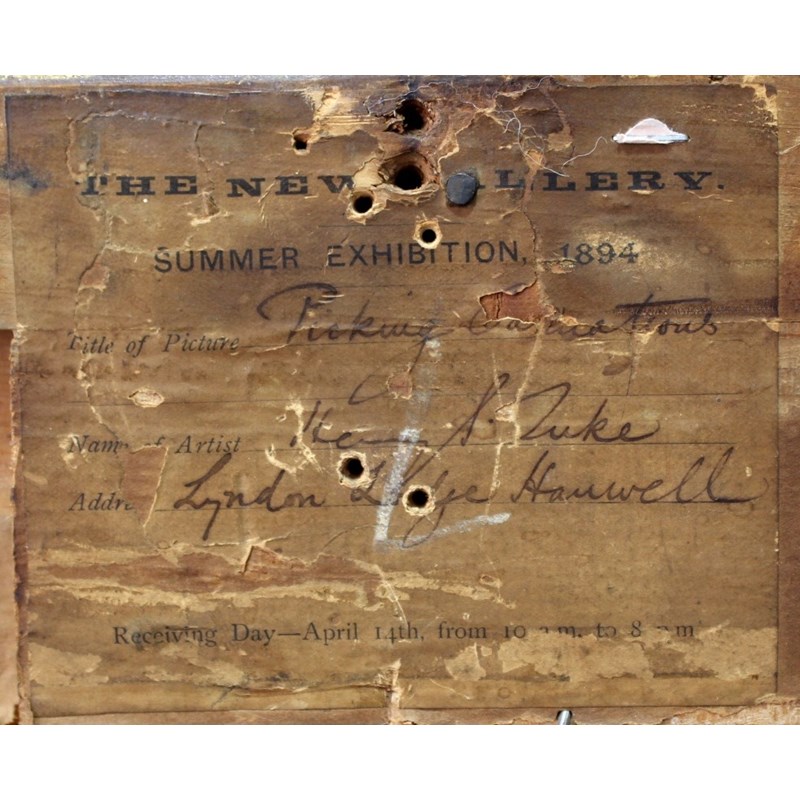 THE NEW GALLERY.
SUMMER EXHIBITION, 1894
Title of Picture Picking Carnations
Name of Artist Henry S. Tuke
Address Lyndon Lodge Hanwell
Receiving Day—April 14th, from 10 a.m. to 8 p.m